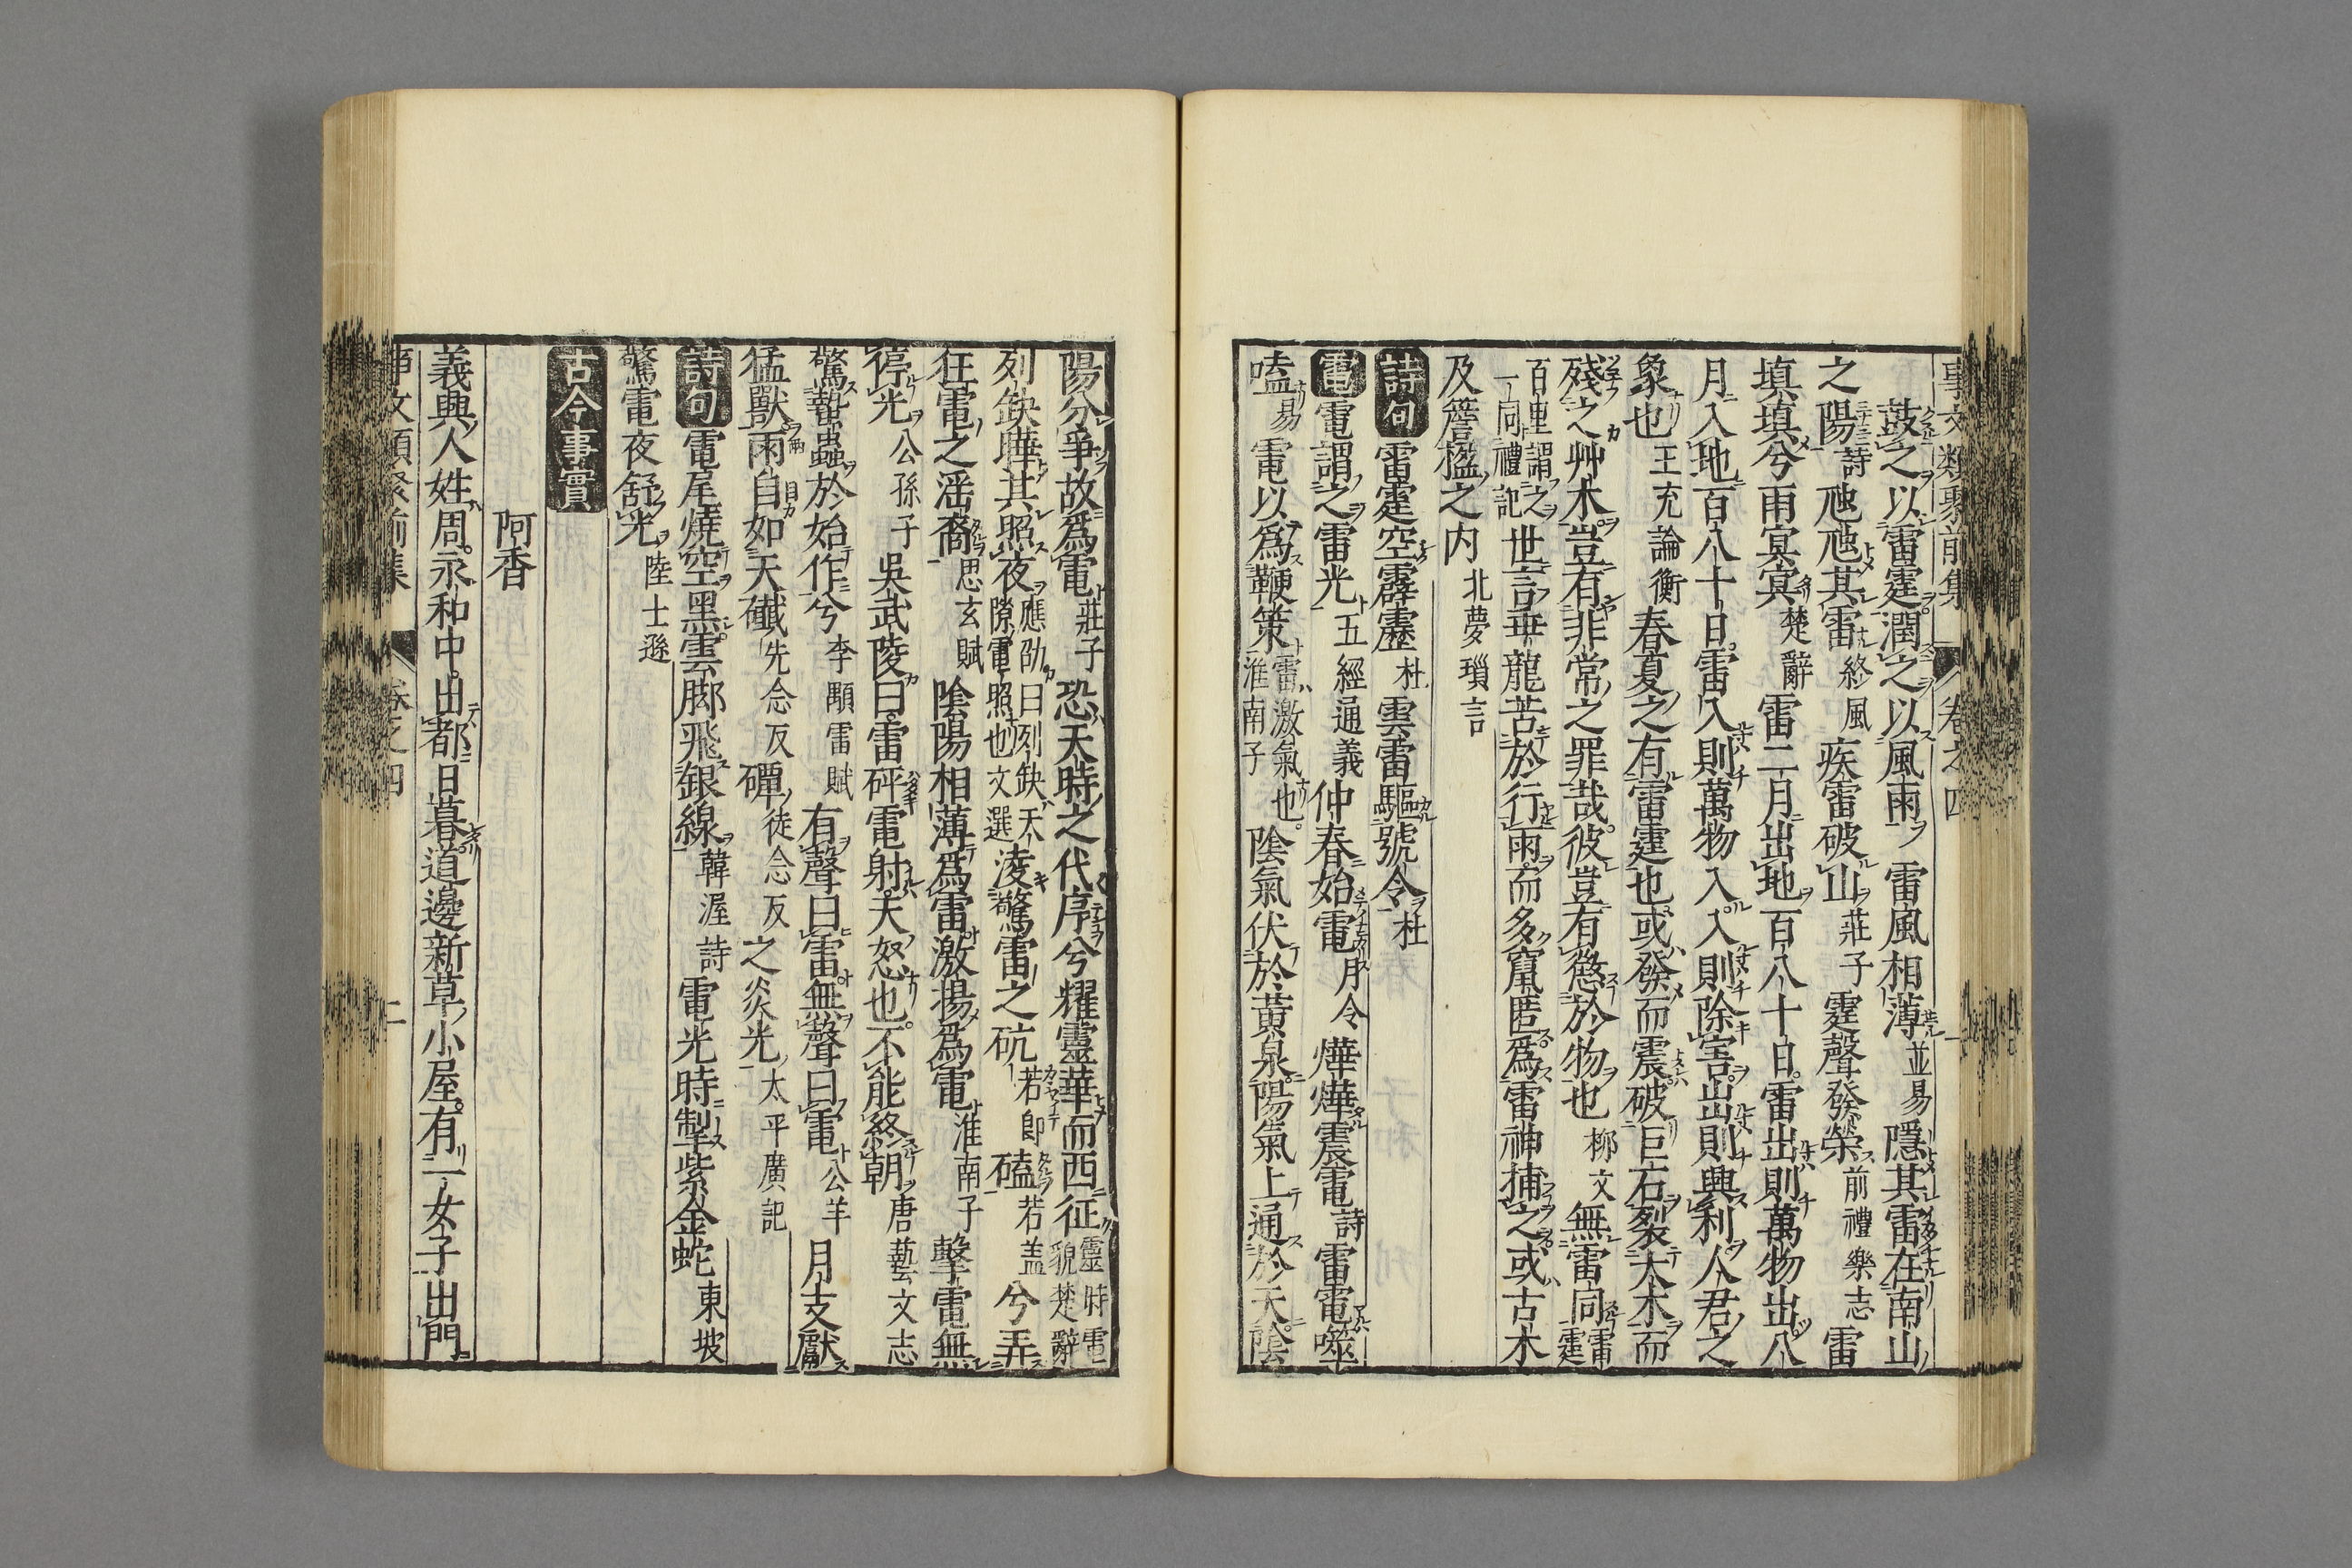 事文類聚前集 卷之四
鼓之以雷霆潤之以風雨 雷風相薄並易隱其雷在南山
之陽詩虺虺其雷終風疾雷破山莊子霆聲發榮前禮樂志雷
填填兮雨冥冥楚辭雷二月出地百八十日雷出則萬物出八
月入地百八十日雷入則萬物入入則除害出則興利人君之
象也王充論衡春夏之有雷霆也或發而震破巨石裂大木而
殘之艸木豈有非常之罪哉彼豈有慾於物也柳文無雷同雷霆
百里謂之一同禮記世言乖龍苦於行雨而多竄匿爲雷神捕之或古木
及簷楹之内北夢瑣言
詩句 雷霆空霹靂杜雲雷驅號令杜
電 電謂之雷光五經通義仲春始電月令燁燁震電詩雷電噬
嗑易電以爲鞭策雷激氣也淮南子陰氣伏於黃泉陽氣上通於天陰
陽分爭故爲電莊子恐天時之代序兮耀靈華而西征靈時電貌楚辭
列缺曄其照夜應劭曰列缺天隙電照也文選凌驚雷之砊若郎磕若盖兮弄
狂電之滛裔思玄賦陰陽相薄爲雷激揚爲電淮南子擊電無
停光公孫子吳武陵曰雷砰電射天怒也不能終朝唐藝文志
驚蟄蟲於始作兮李顒雷賦有聲曰雷無聲曰電公羊月支獻
猛獸兩目如天㸃先念反磹徒念反之炎光太平廣記
詩句 電尾燒空黑雲脚飛銀線韓渥詩電光時掣紫金蛇東坡
驚電夜舒光陸士遜
古今事實
阿香
義興人姓周永和中出都日暮道邊新草小屋有一女子出門
事文類聚前集 卷之四 二